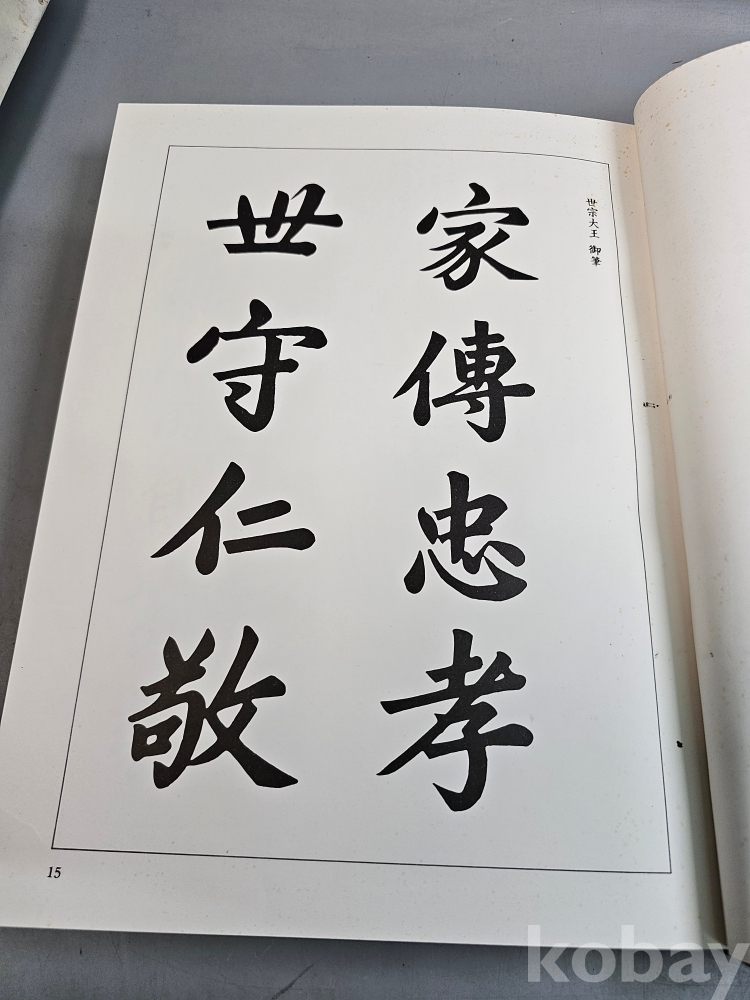 世宗大王 御筆
家傳忠孝
世守仁敬
15
kobay